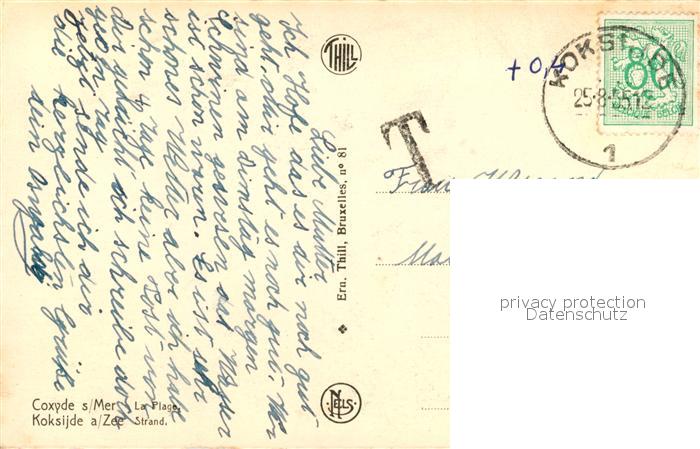 Liebe Mutter
Ich Hofe das es dir noch gut
geht. Mir geht es noch gut. Wir
sind am Dinstag morgen
Schwimen gewesen das Wasser
ist schön warm. Es ist sehr
schönes Wetter aber ich habe
schon 4 Tage keine Post von
dir gehabt ich schreibe doch
jeden Tag
jetzt sende ich dir
die herzlichsten Grüße
dein
THILL
Ern. Thill, Bruxelles, n° 81
NELS
Coxyde s/Mer La Plage.
Koksijde a/Zee Strand.
+ 0,4
T
KOKSIJDE
25-8-55
1
86
BELGIQUE BELGIE
Frau
privacy protection
Datenschutz